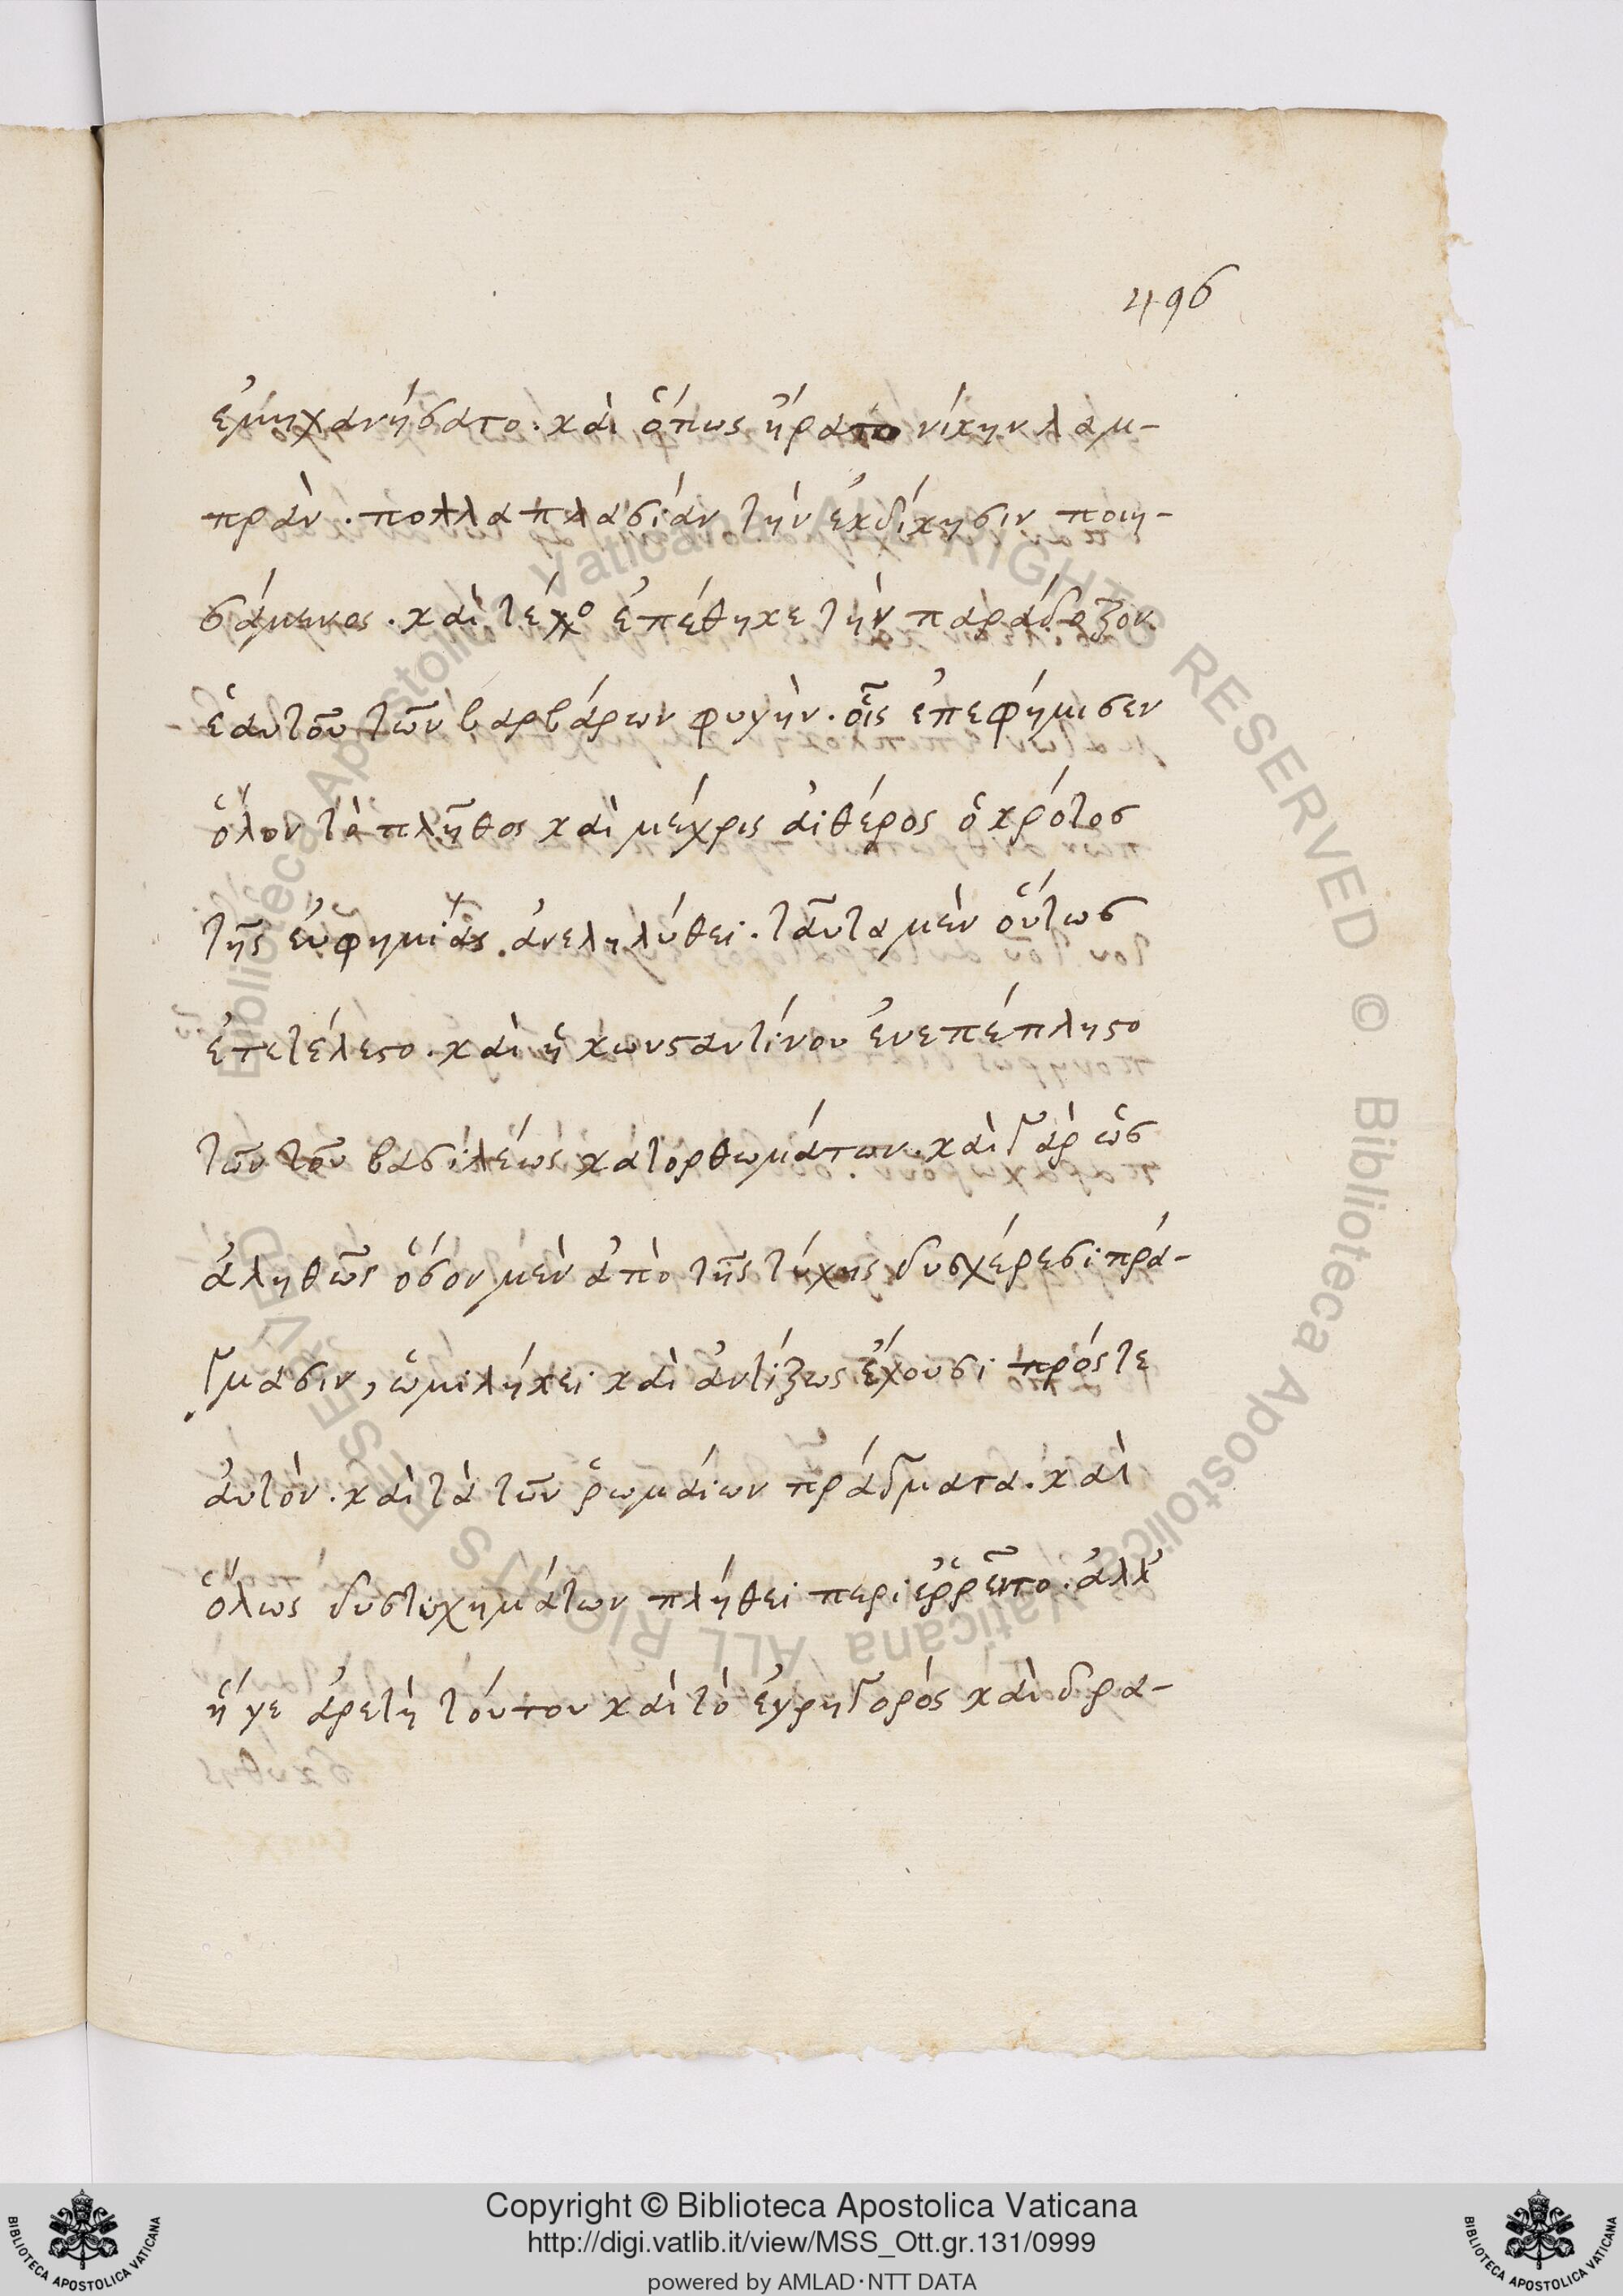 496
ἐμηχανήσατο. καὶ ὅπως ἤρατο νίκην λαμ-
πράν. πολλαπλασίαν τὴν ἐκδίκησιν ποιη-
σάμενος. καὶ τέλος ἐπέθηκε τὴν παράδοξον
ἑαυτοῦ τῶν βαρβάρων φυγήν. οἷς ἐπεφήμισεν
ὅλον τὸ πλῆθος καὶ μέχρις αἰθέρος ὁ κρότος
τῆς εὐφημίας ἀνεληλύθει. ταῦτα μὲν οὕτως
ἐτετέλεστο. καὶ ἡ κωνσταντίνου ἐνεπέπληστο
τῶν τοῦ βασιλέως κατορθωμάτων. καὶ γὰρ ὡς
ἀληθῶς ὅσον μὲν ἀπὸ τῆς τύχης δυσχέρεσι πρά-
γμασιν, ὡμιλήκει καὶ ἀντίξως ἔχουσι πρός τε
αὐτόν. καὶ τὰ τῶν ῥωμαίων πράγματα. καὶ
ὅλως δυστυχημάτων πλήθει περιεῤῥεῖτο. ἀλλ'
ἥ γε ἀρετὴ τούτου καὶ τὸ ἐγρηγορός καὶ δρα-
Biblioteca Apostolica Vaticana ALL RIGHTS RESERVED © Biblioteca Apostolica Vaticana ALL RIGHTS RESERVED ©
BIBLIOTECA APOSTOLICA VATICANA
Copyright © Biblioteca Apostolica Vaticana
http://digi.vatlib.it/view/MSS_Ott.gr.131/0999
powered by AMLAD·NTT DATA
BIBLIOTECA APOSTOLICA VATICANA